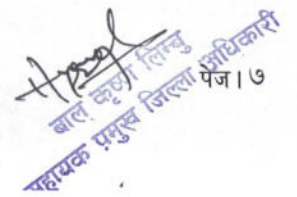 बाल कृष्ण लिम्बु
सहायक प्रमुख जिल्ला अधिकारी
पेज । ७